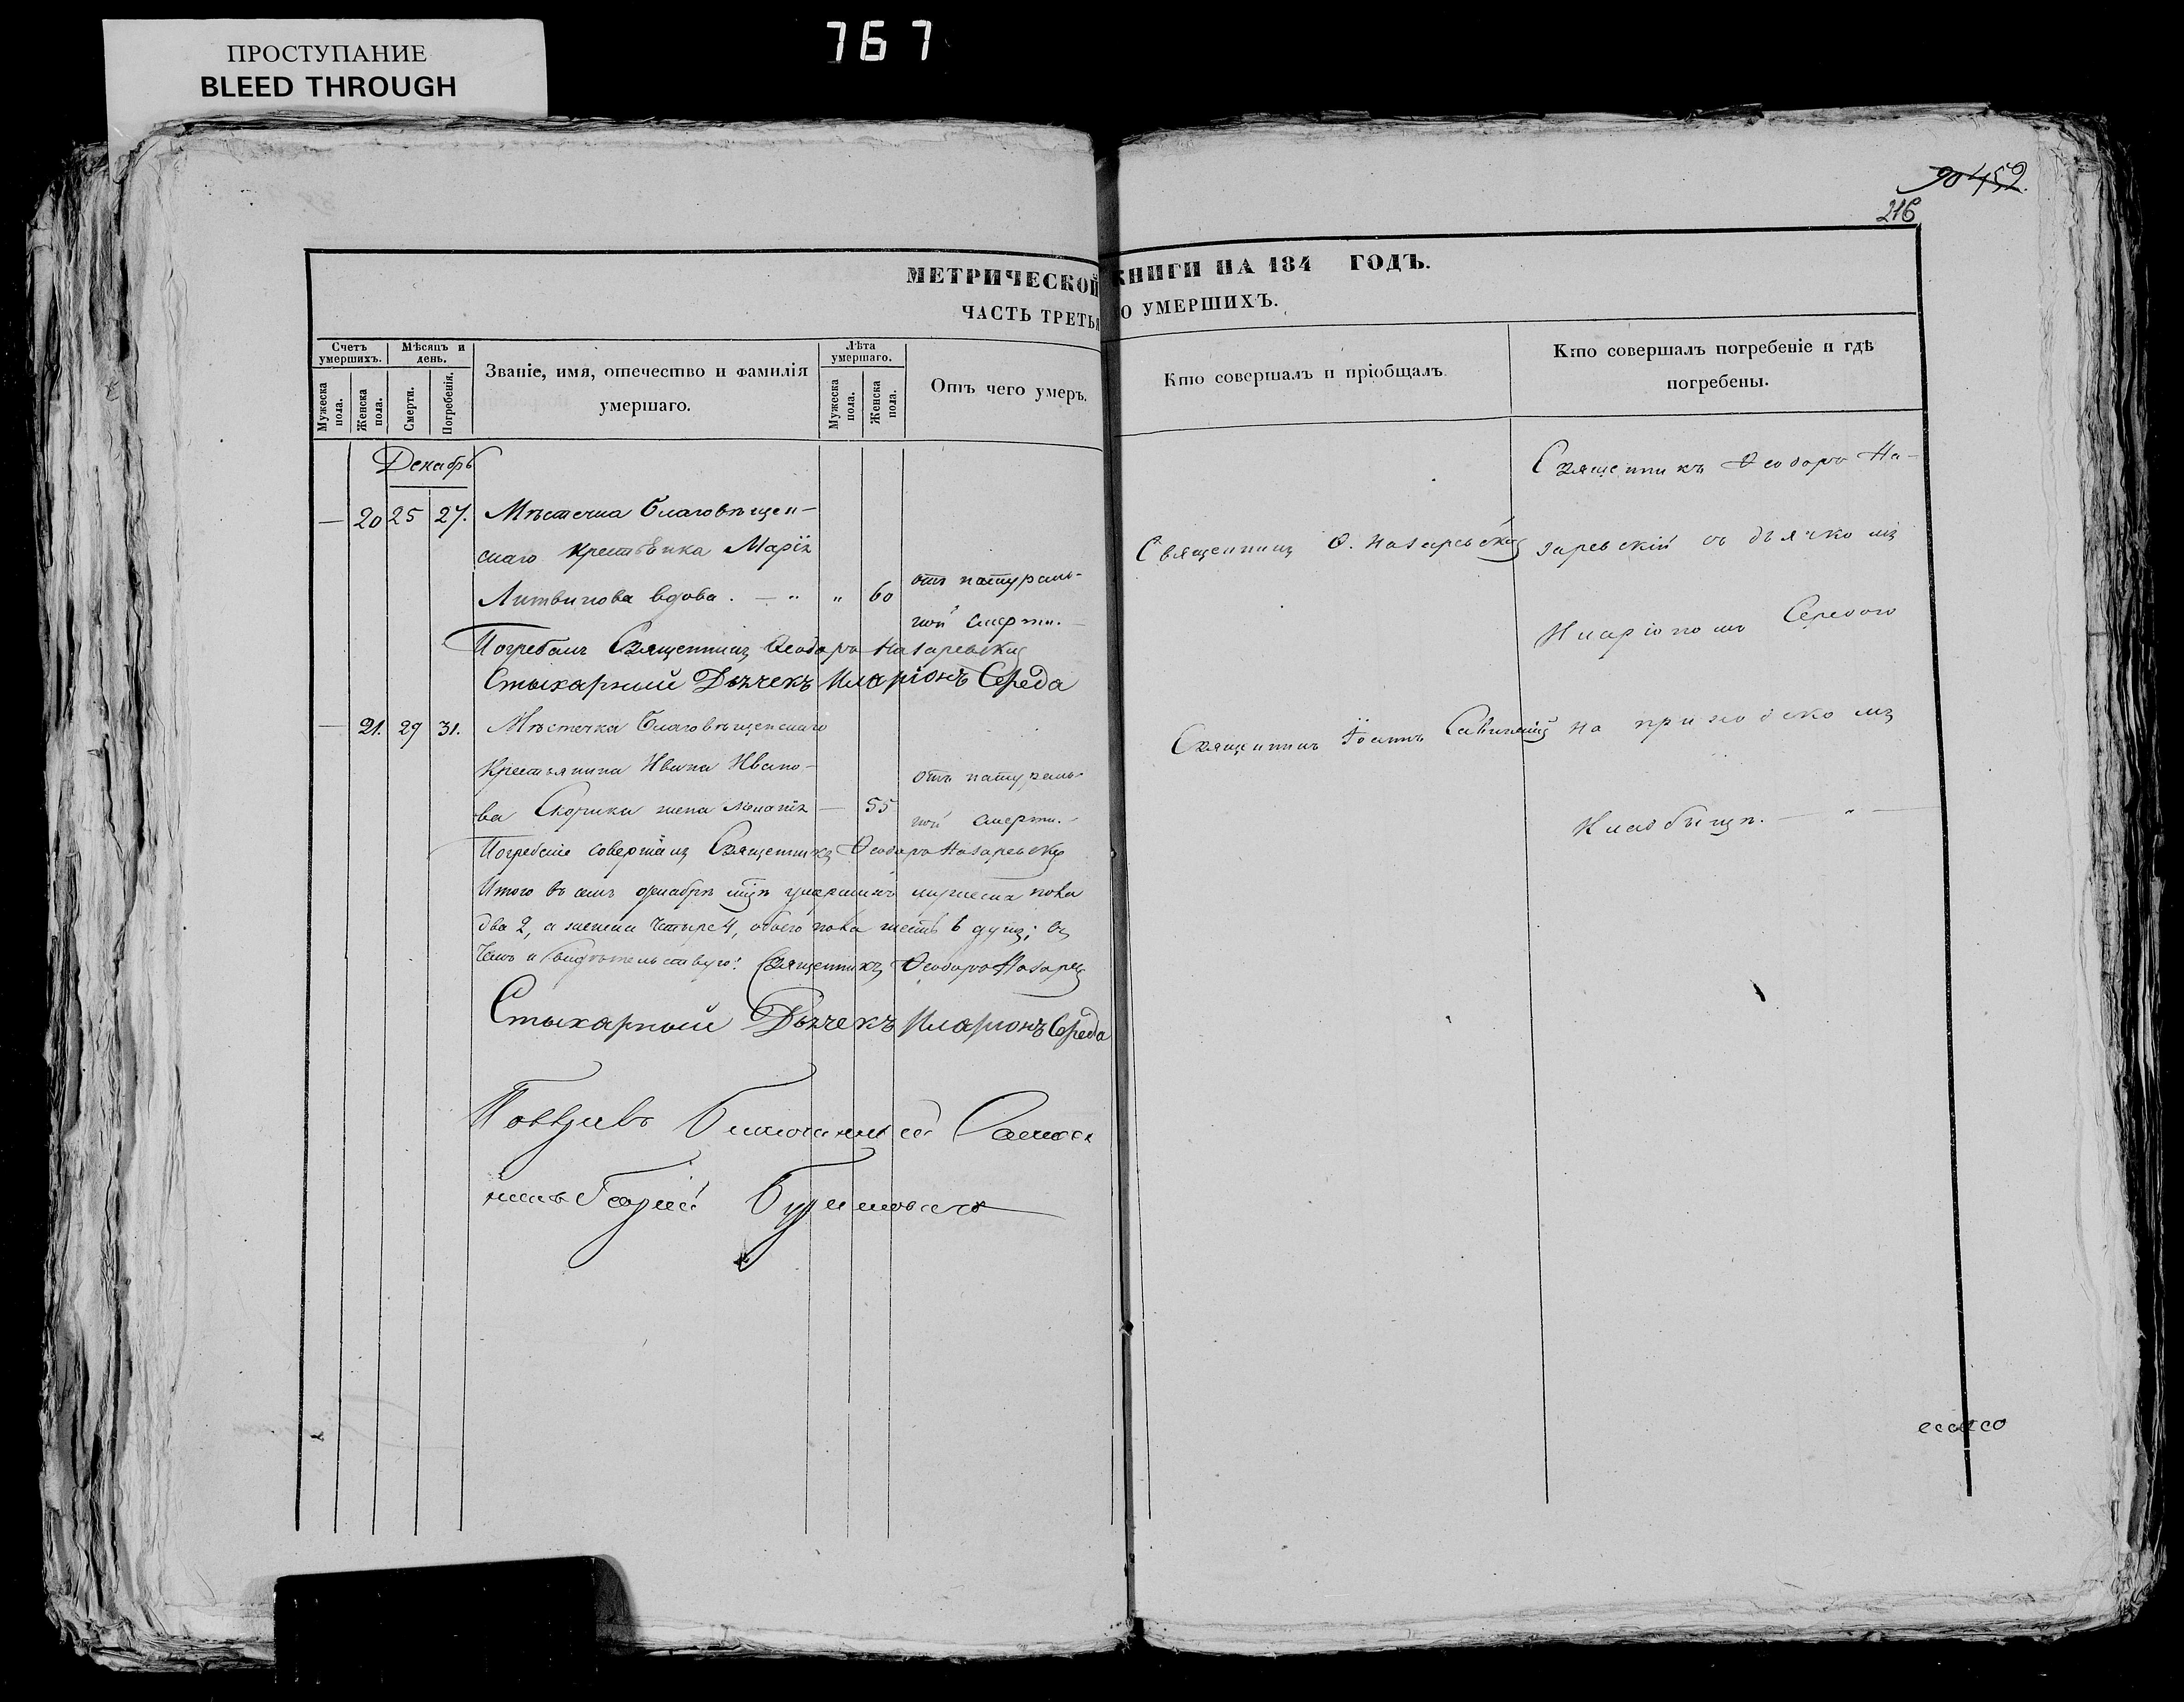 ПРОСТУПАНИЕ
BLEED THROUGH
767
90 452.
216
МЕТРИЧЕСКОЙ КНИГИ НА 184 ГОДЪ.
ЧАСТЬ ТРЕТЬЯ О УМЕРШИХЪ.
Счетъ умершихъ.
Мѣсяцъ и день.
Званіе, имя, отечество и фамилія умершаго.
Лѣта умершаго.
Отъ чего умеръ.
Кто совершалъ и пріобщалъ
Кто совершалъ погребеніе и гдѣ погребены.
Мужеска пола.
Женска пола.
Смерти.
Погребенія.
Мужеска пола.
Женска пола.
Декабрь
— 20 25 27. Мѣстечка Благовѣщен-
скаго крестьянка Марія
Литвинова вдова. — " " 60
отъ натураль-
ной смерти.
Священникъ Ѳ. Назаревскій
Погребалъ Священникъ Ѳеодоръ Назаревскій
Стыхарный Дьячекъ Иларіонъ Середа
— 21. 29 31. Мѣстечка Благовѣщенскаго
Крестьянина Ивана Ивано-
ва Скорика жена Меланія — 55
отъ натураль-
ной смерти.
Священникъ Іоаннъ Савинскій
Погребеніе совершалъ Священникъ Ѳеодоръ Назаревскій
Итого въ семъ декабрѣ мцѣ умершихъ мужеска пола
два 2, а женска четыре 4, обоего пола шесть 6 душъ; въ
чемъ и свидѣтельствую: Священникъ Ѳеодоръ Назарев
Стыхарный Дьячекъ Иларіонъ Середа
Священникъ Ѳеодоръ На-
заревскій съ дьячкомъ
Иларіономъ Середою
на приходскомъ
кладбищѣ. — " —